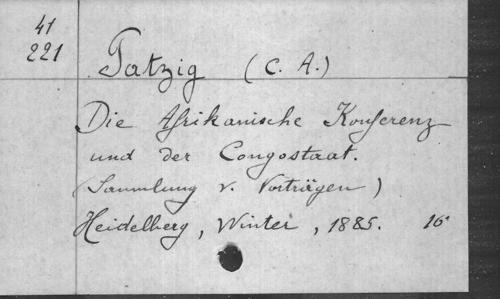 41
221
Patzig (C. A.)
Die Afrikanische Konferenz
und der Congostaat.
(Sammlung v. Vorträgen)
Heidelberg, Winter, 1885. 16°